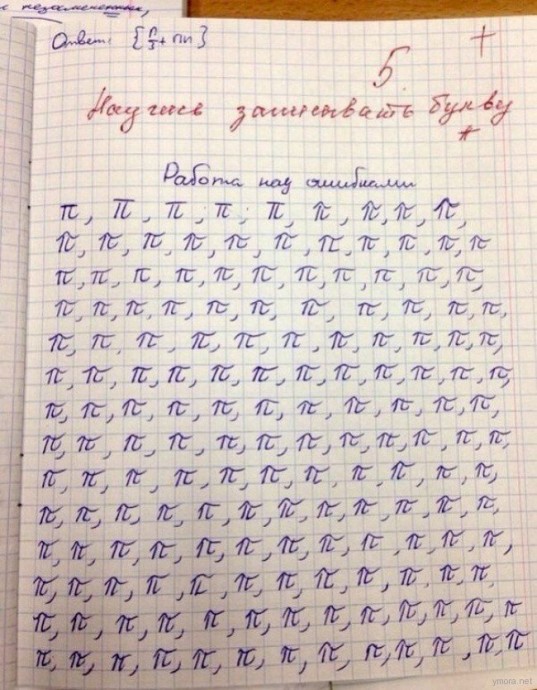 Ответ: {π/3 + πn}
5 +
Научись записывать букву
π
Работа над ошибками
π, π, π, π, π, π, π, π, π,
π, π, π, π, π, π, π, π, π, π, π
π, π, π, π, π, π, π, π, π, π, π,
π, π, π, π, π, π, π, π, π, π, π,
π, π, π, π, π, π, π, π, π, π, π,
π, π, π, π, π, π, π, π, π, π, π, π,
π, π, π, π, π, π, π, π, π, π, π,
π, π, π, π, π, π, π, π, π, π, π, π,
π, π, π, π, π, π, π, π, π, π, π,
π, π, π, π, π, π, π, π, π, π, π, π,
π, π, π, π, π, π, π, π, π, π, π, π,
π, π, π, π, π, π, π, π, π, π, π, π,
π, π, π, π, π, π, π, π, π, π, π, π, π
π, π, π, π, π, π, π, π, π, π, π, π, π
ymora.net